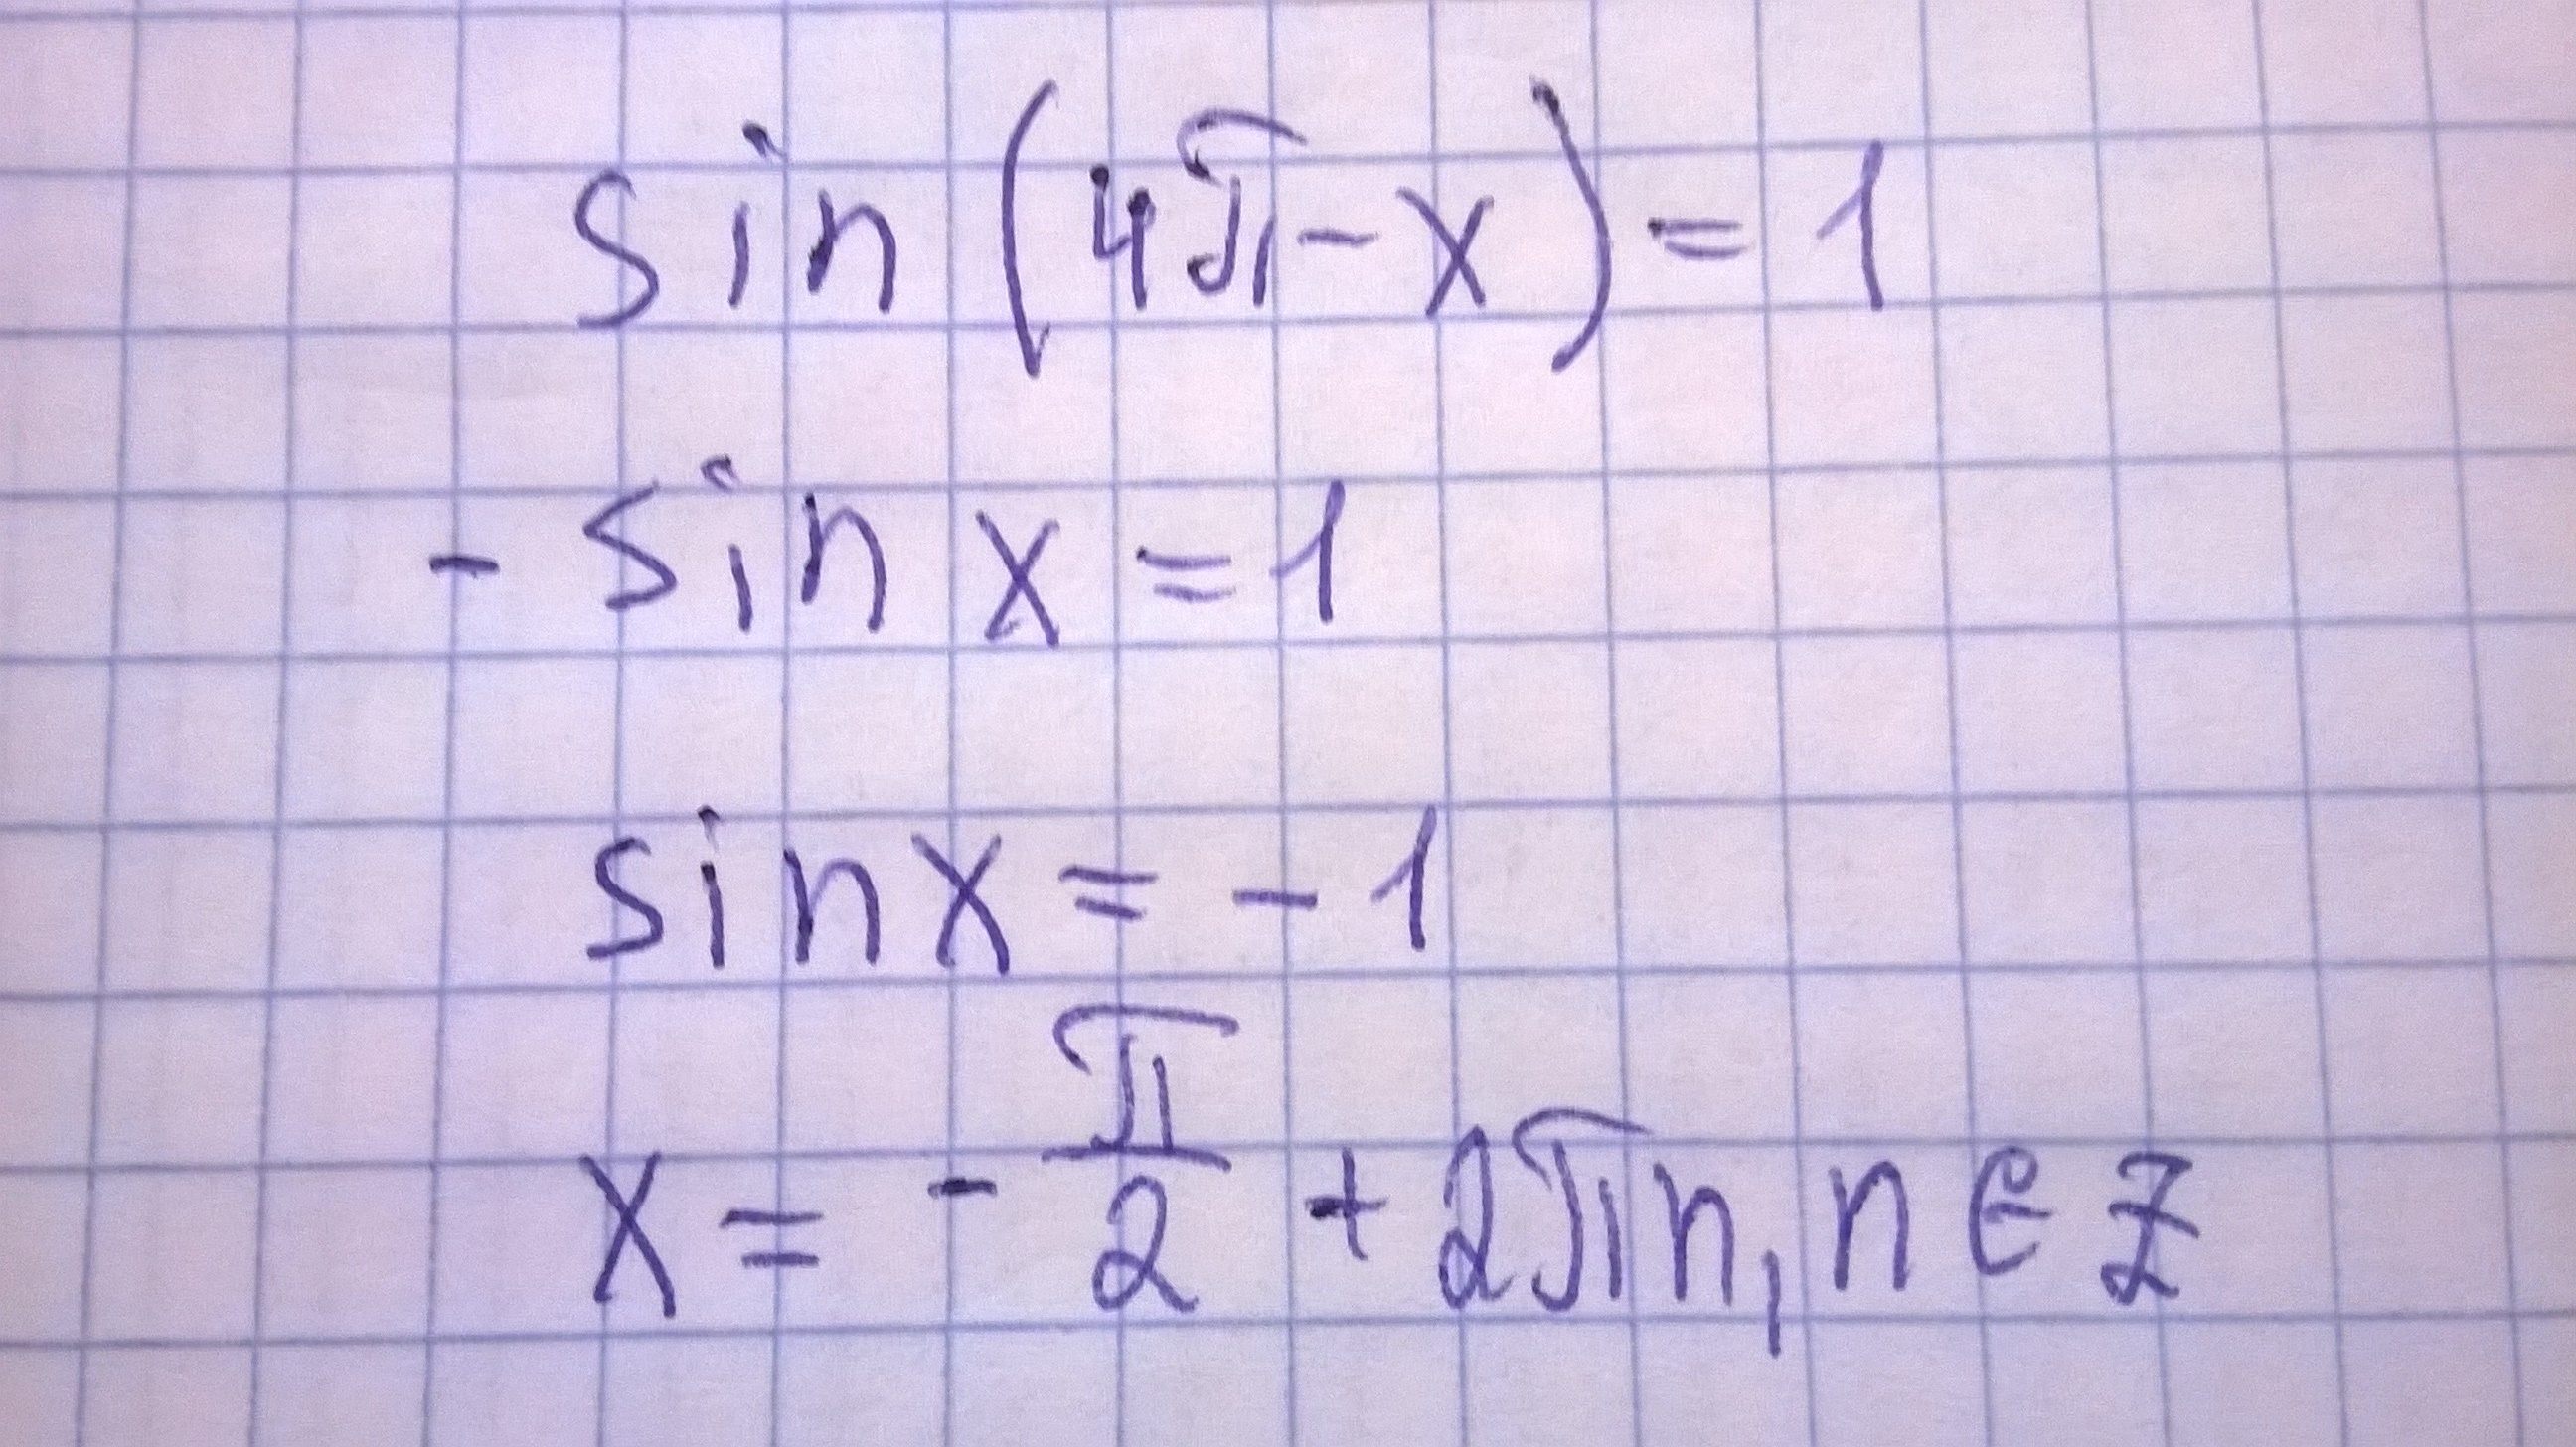 sin (4π - x) = 1
- sin x = 1
sin x = - 1
x = - π/2 + 2πn, n ∈ Z